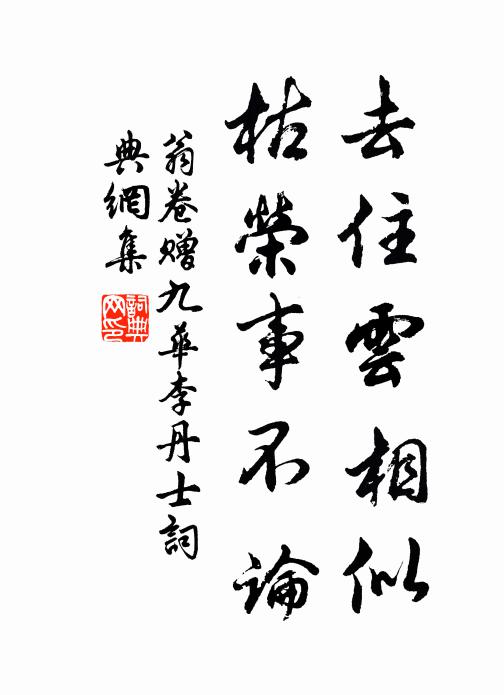 去住雲相似
枯榮事不論
翁卷贈九華李丹士詞
典網集
詞典網印